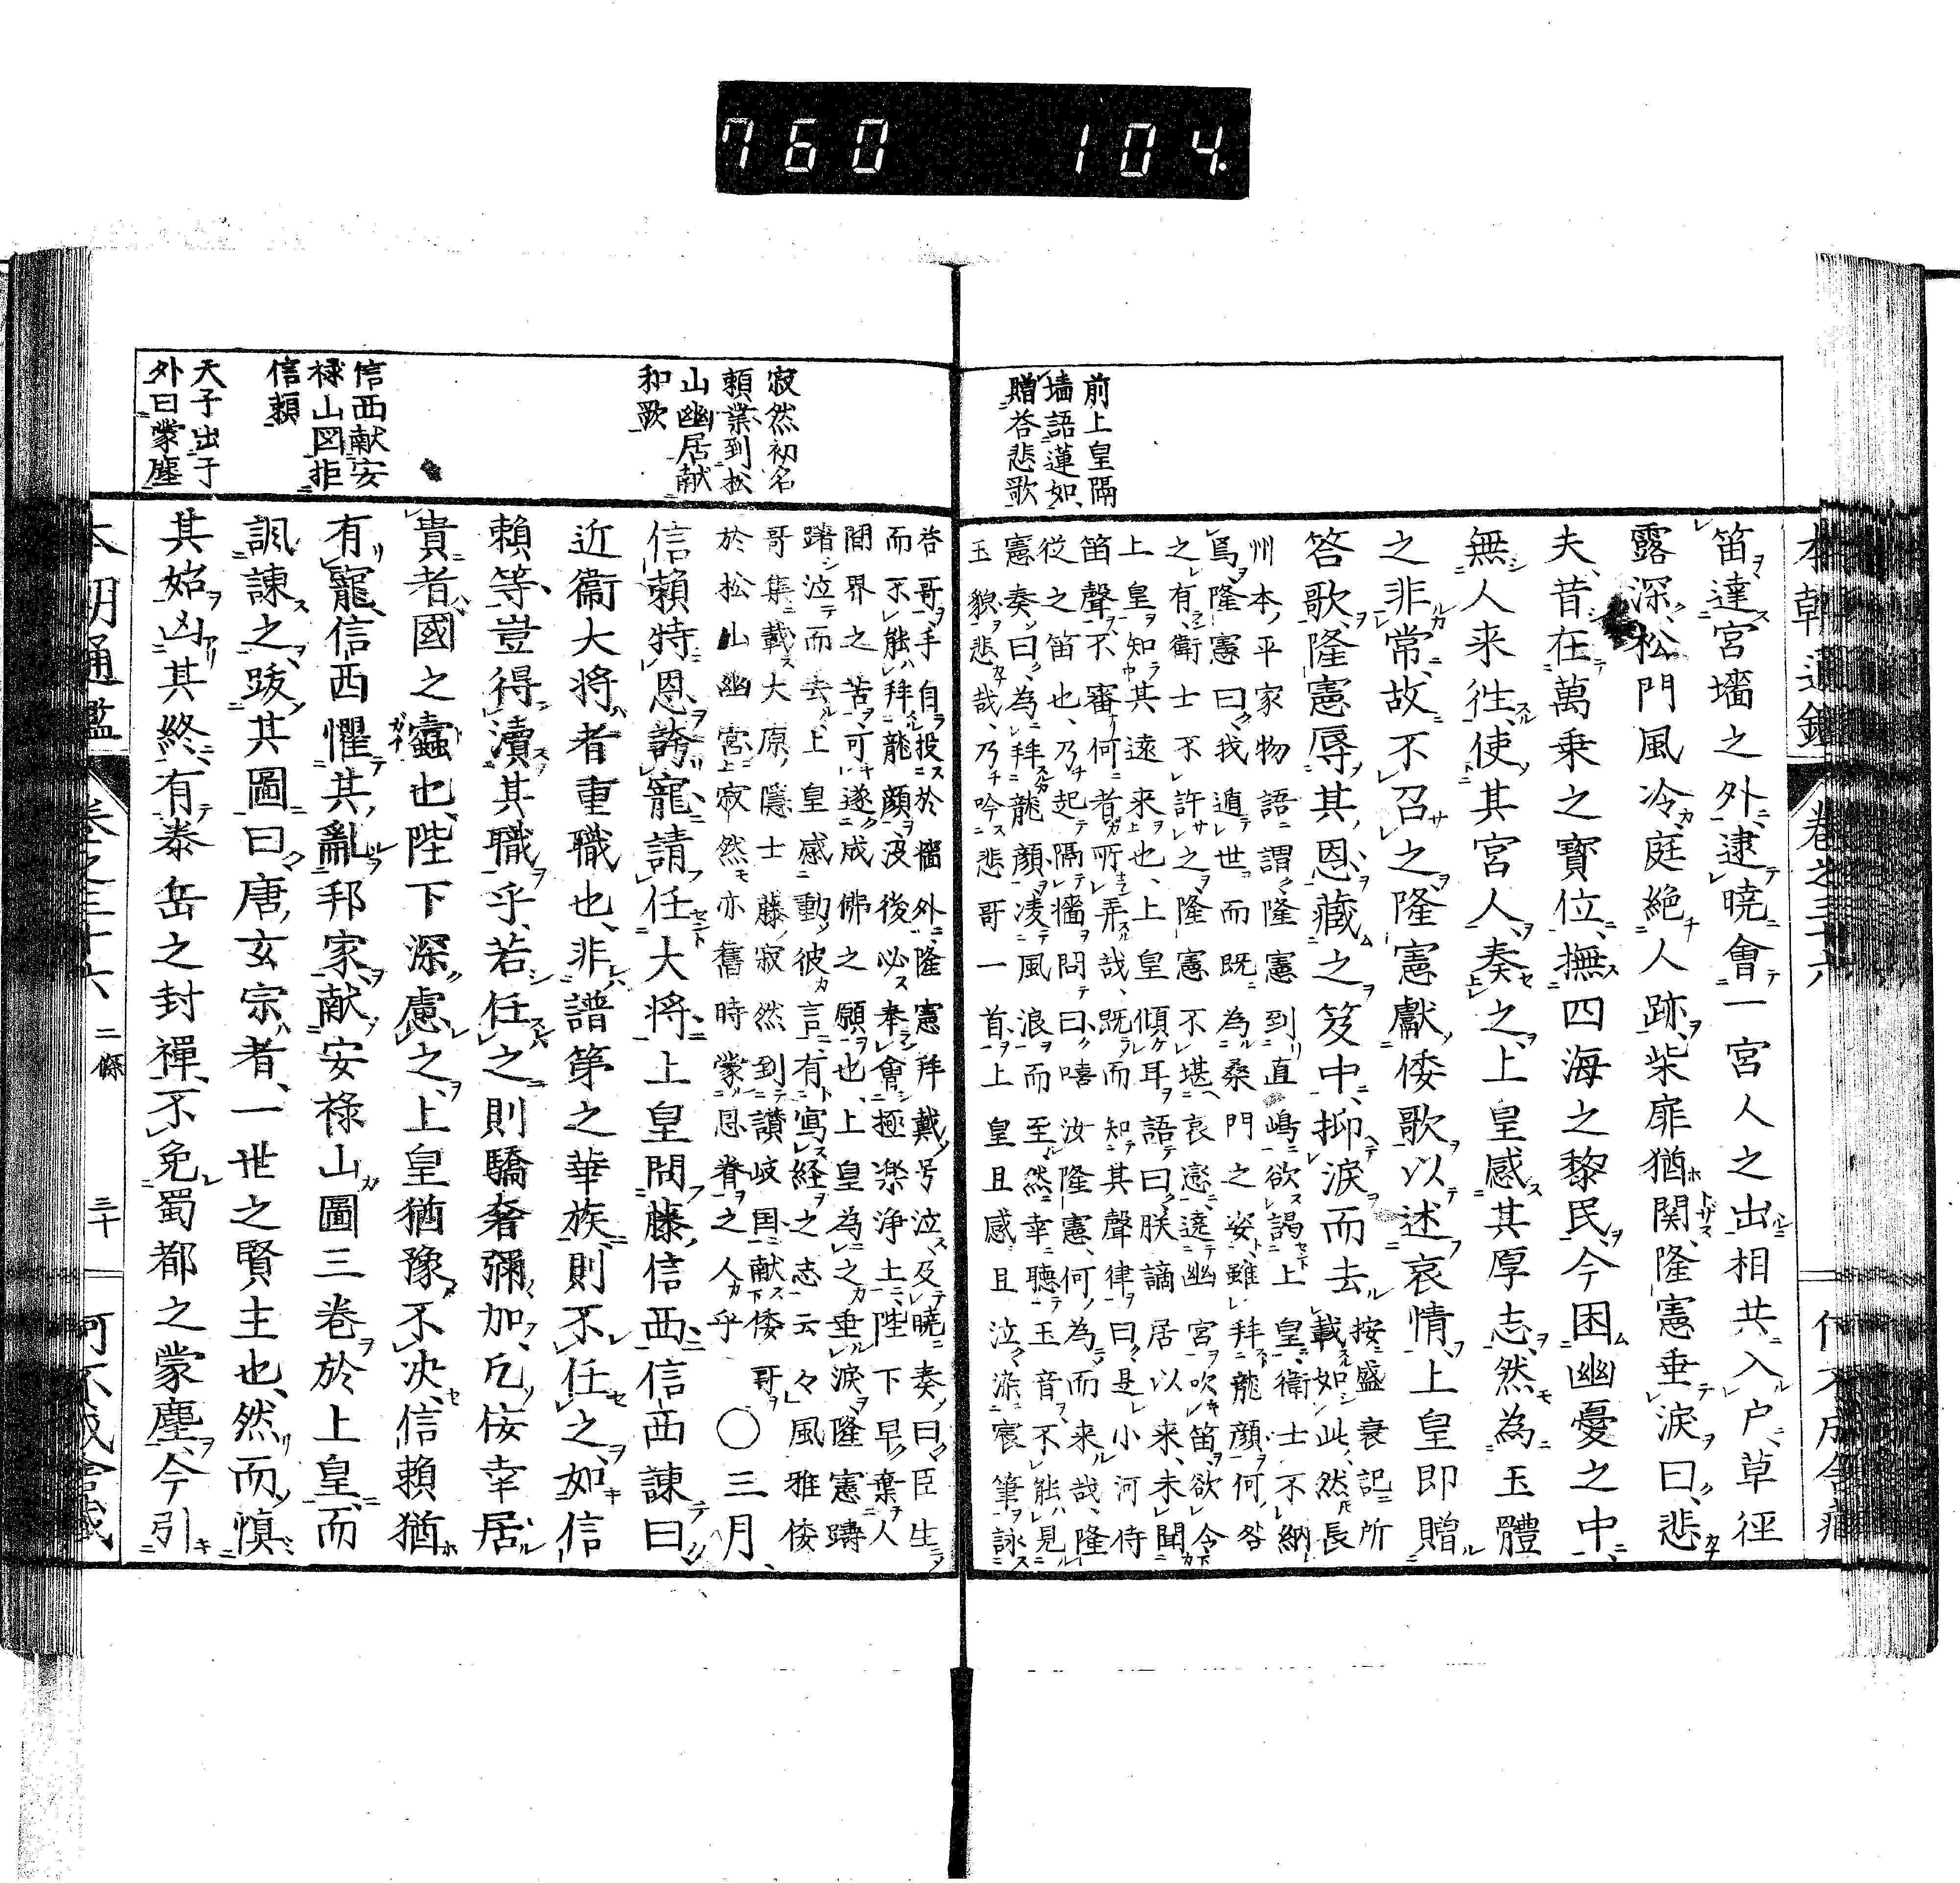 760 104
前上皇隔
墙語蓮如
贈答悲歌
笛達宮墻之外逮曉會一宮人之出相共入户草徑
露深松門風冷庭絶人跡柴扉猶関隆憲垂淚曰悲
夫昔在萬乗之寶位撫四海之黎民今困幽憂之中
無人来徃使其宮人奏之上皇感其厚志然為玉體
之非常故不召之隆憲獻倭歌以述哀情上皇即贈
答歌隆憲辱其恩藏之笈中抑淚而去
按盛衰記所
載如此然長
州本平家物語謂隆憲到直嶋欲謁上皇衛士不納
爲隆憲曰我遁世而既為桑門之姿雖拜龍顔何咎
之有衛士不許之隆憲不堪哀戀遶幽宮吹笛欲令
上皇知其遠来也上皇傾耳語曰朕謫居以来未聞
笛聲不審何者所弄哉既而知其聲律曰是小河侍
從之笛也乃起隔墻問曰嘻汝隆憲何為而来哉隆
憲奏曰為拜龍顔凌風浪而至然幸聽玉音不能見
玉貌悲哉乃吟悲哥一首上皇且感且泣染宸筆詠
本朝通鑑 卷之三十六
寂然初名
頼業到松
山幽居献
和歌
信西献安
禄山図拒
信頼
天子出于
外曰蒙塵
答哥手自投於墻外隆憲拜戴号泣及曉奏曰臣生
而不能拜龍顔没後必奉會極楽浄土陛下早棄人
間界之苦可遂成佛之願也上皇為之垂淚隆憲躊
躇泣而去上皇感動彼言有寫経之志云々風雅倭
哥集載大原隱士藤寂然到讃岐国献倭哥
於松山幽宮寂然亦舊時蒙恩眷之人乎
○三月
信賴特恩誇寵請任大将上皇問藤信西信西諫曰
近衞大将者重職也非譜第之華族則不任之如信
賴等豈得瀆其職乎若任之則驕奢彌加凢侫幸居
貴者國之蠹也陛下深慮之上皇猶豫不决信賴猶
有寵信西懼其亂邦家献安祿山圖三卷於上皇而
諷諫之跋其圖曰唐玄宗者一世之賢主也然而慎
其始凶其終有泰岳之封禪不免蜀都之蒙塵今引
本朝通鑑 卷之三十六 二條 三十